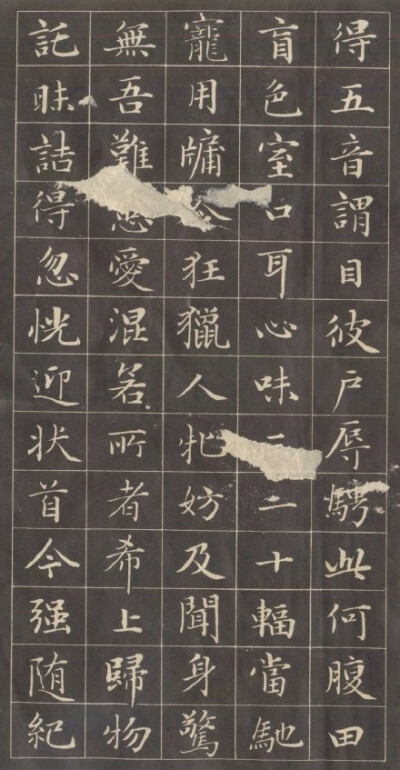 得五音謂目彼户辱騁此何腹田
盲色室口耳心味二十輻當馳
寵用牗令狂獵人牝妨及聞身驚
無吾難患愛混若所者希上歸物
託昧詰得忽恍迎状首今强随紀